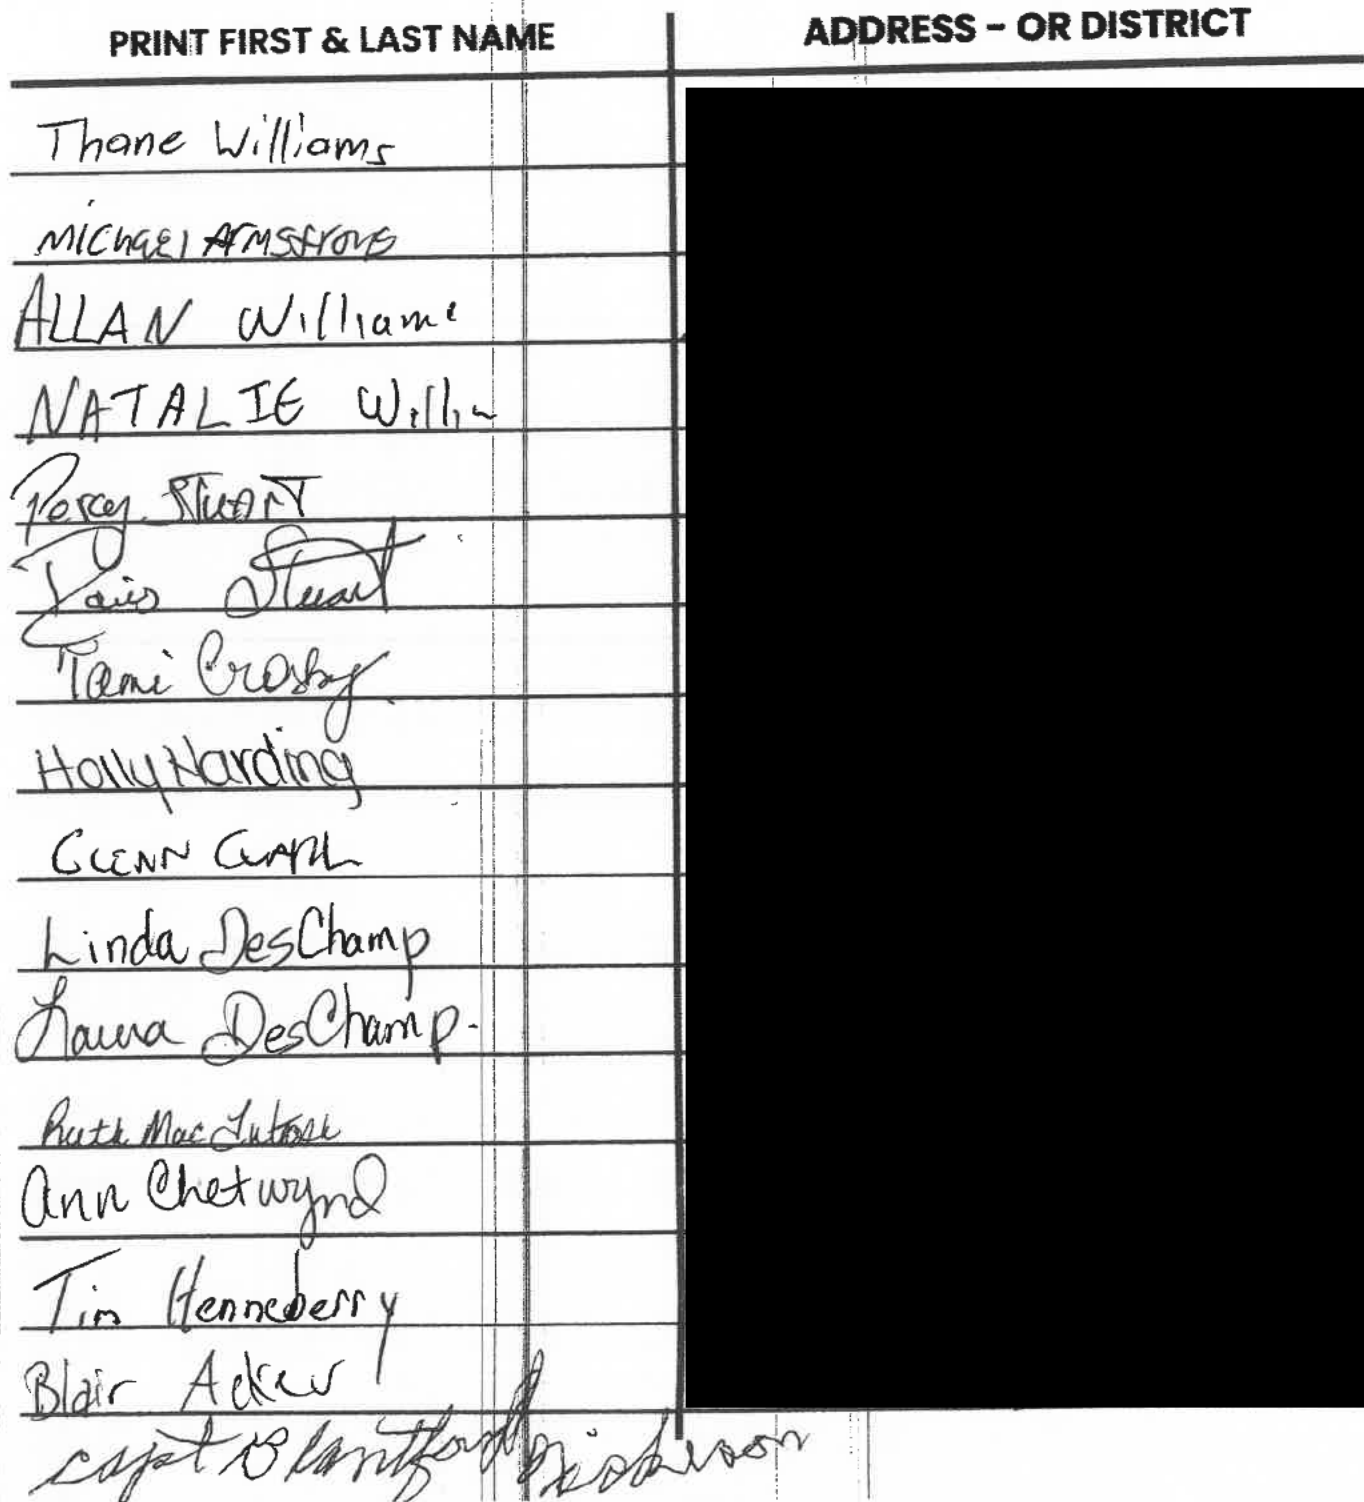 PRINT FIRST & LAST NAME ADDRESS – OR DISTRICT
Thane Williams
MICHAEl ARMSTRONG
ALLAN Williams
NATALIE
Percy STUART
Stuart
Tami Crosby
Holly Harding
GLENN CLARK
Linda DesChamp
Laura DesChamp.
Ruth MacIntosh
Ann Chetwynd
Tim Henneberry
Blair
capt